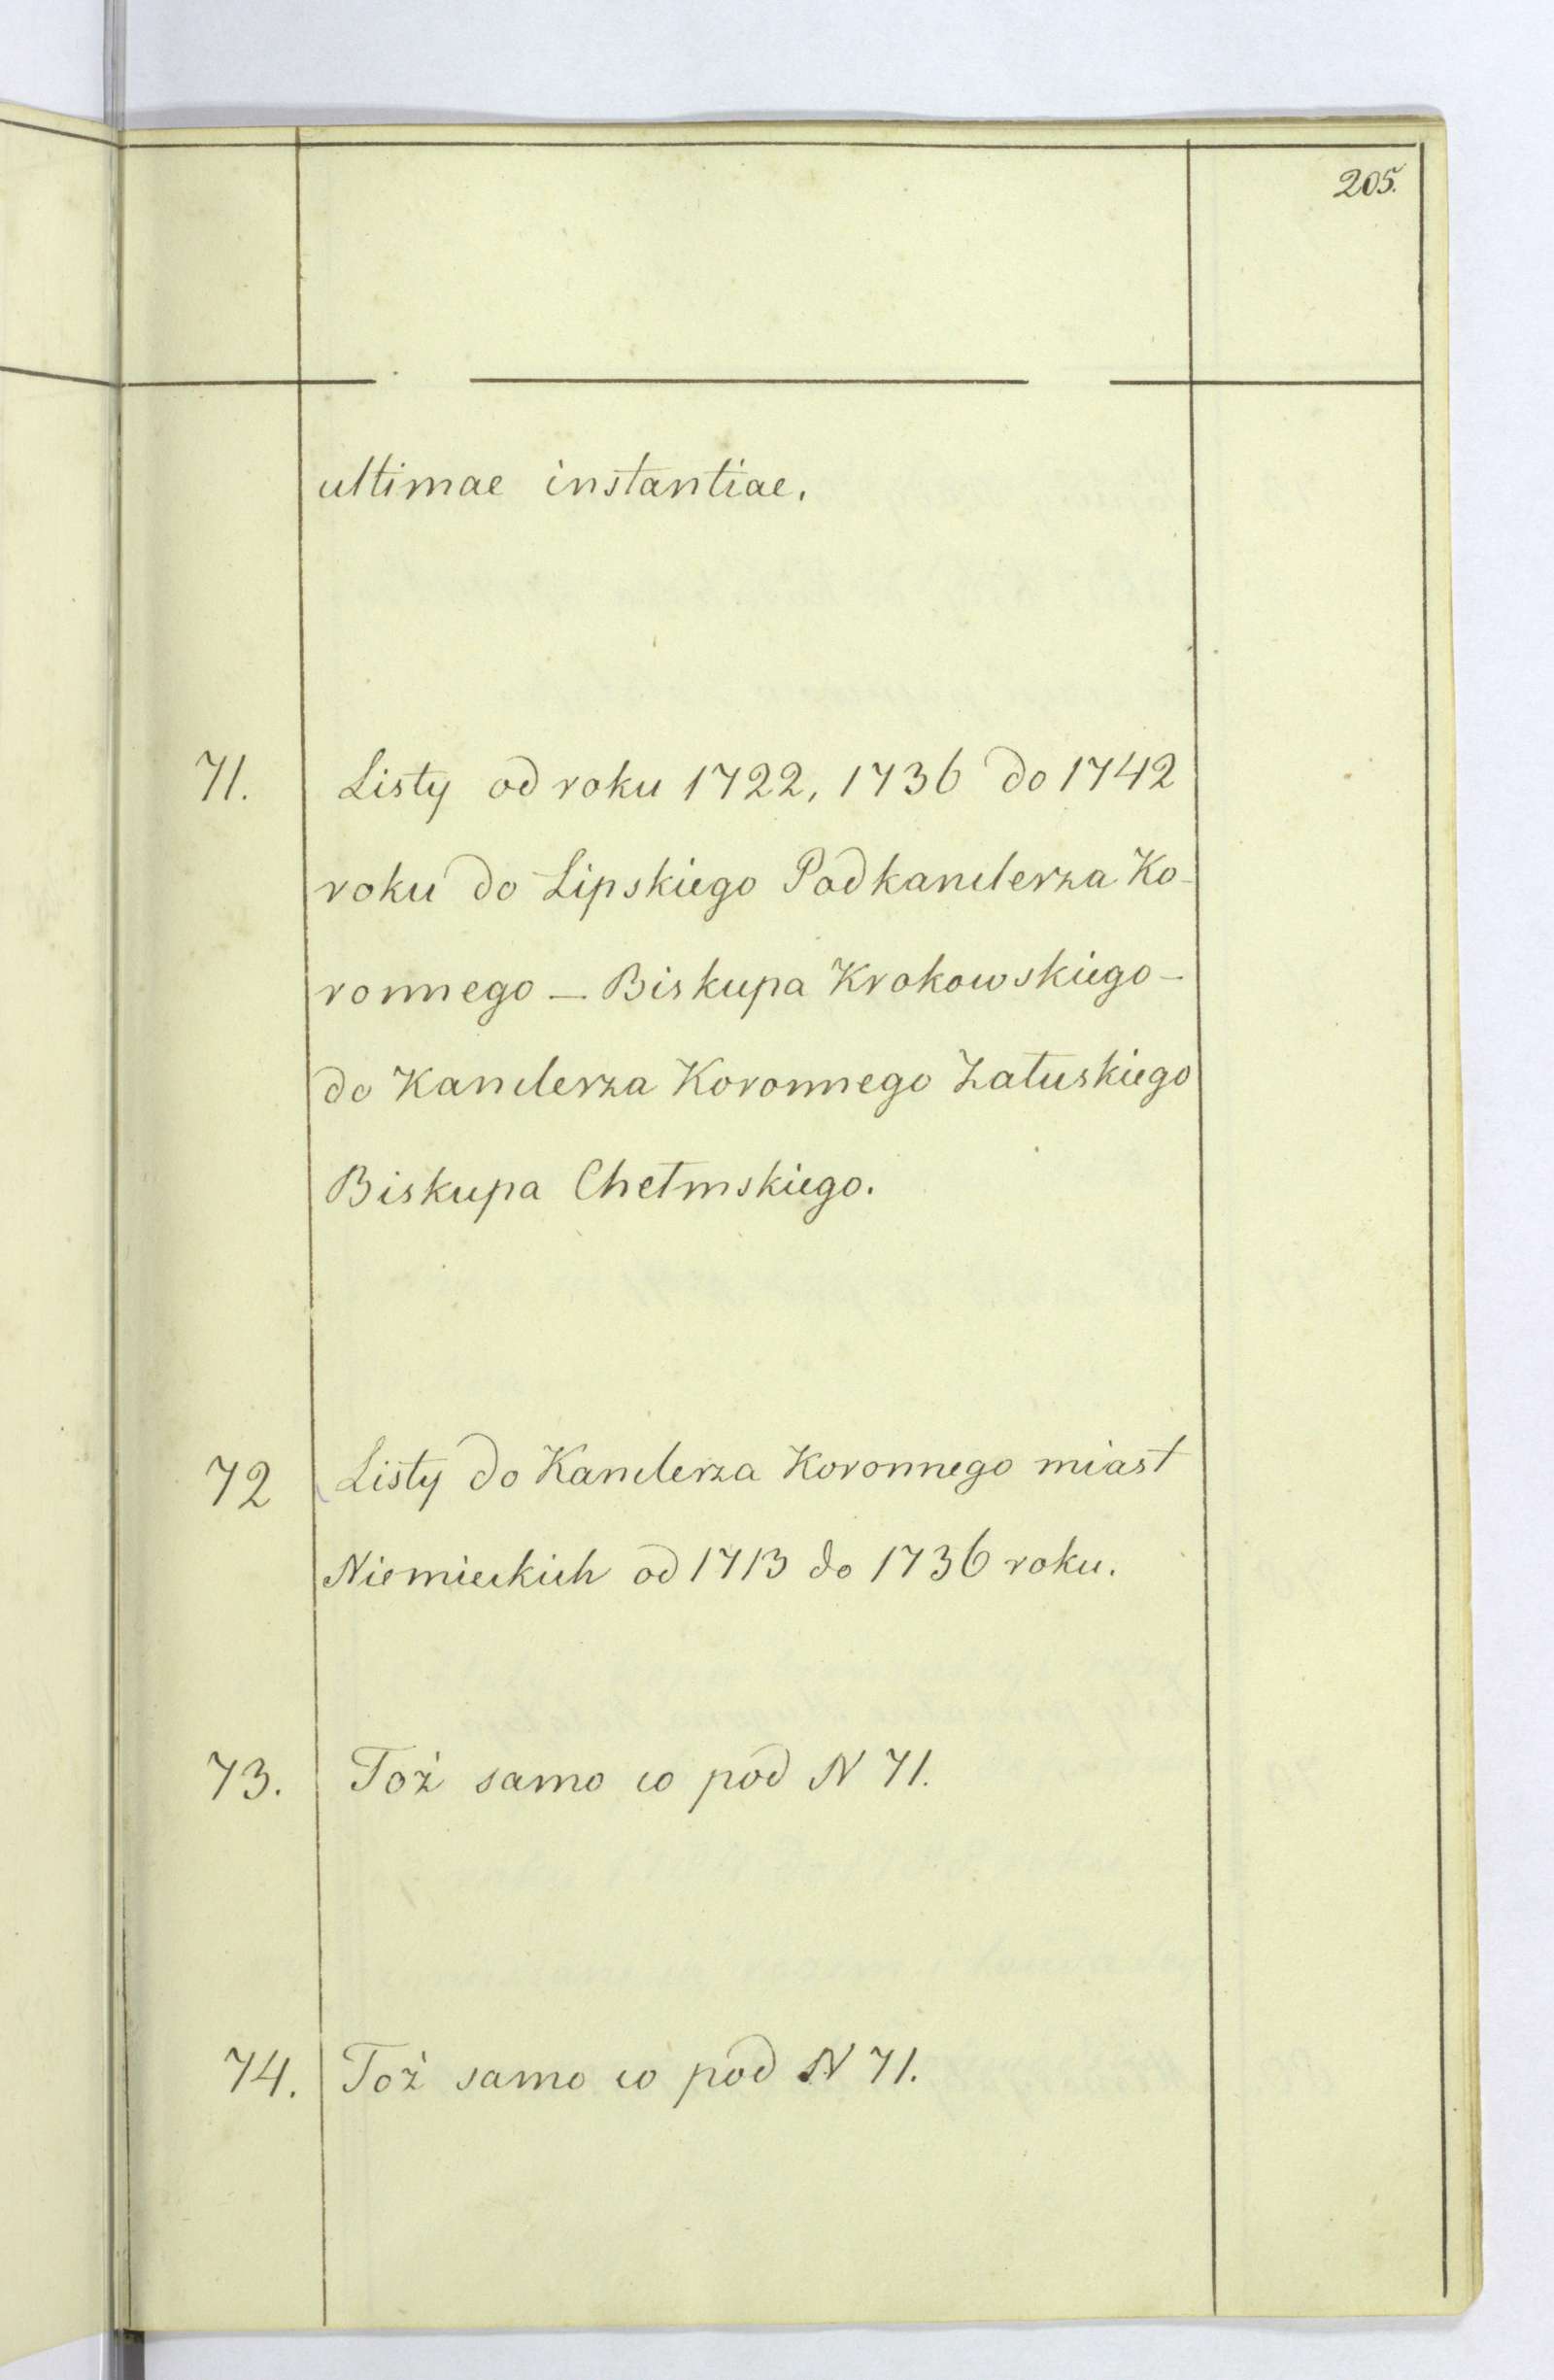 205.
ultimae instantiae.
71. Listy od roku 1722, 1736 do 1742
roku do Lipskiego Podkanclerza Ko-
ronnego — Biskupa Krakowskiego —
do Kanclerza Koronnego Załuskiego
Biskupa Chełmskiego.
72 Listy do Kanclerza Koronnego miast
Niemieckich od 1713 do 1736 roku.
73. Toż samo co pod N 71.
74. Toż samo co pod N 71.